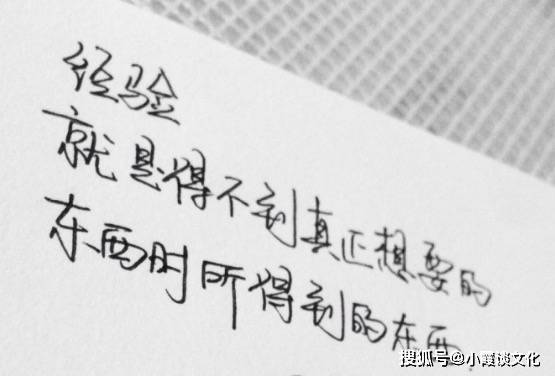 经验
就是得不到真正想要的
东西时所得到的东西.
搜狐号@小霞谈文化